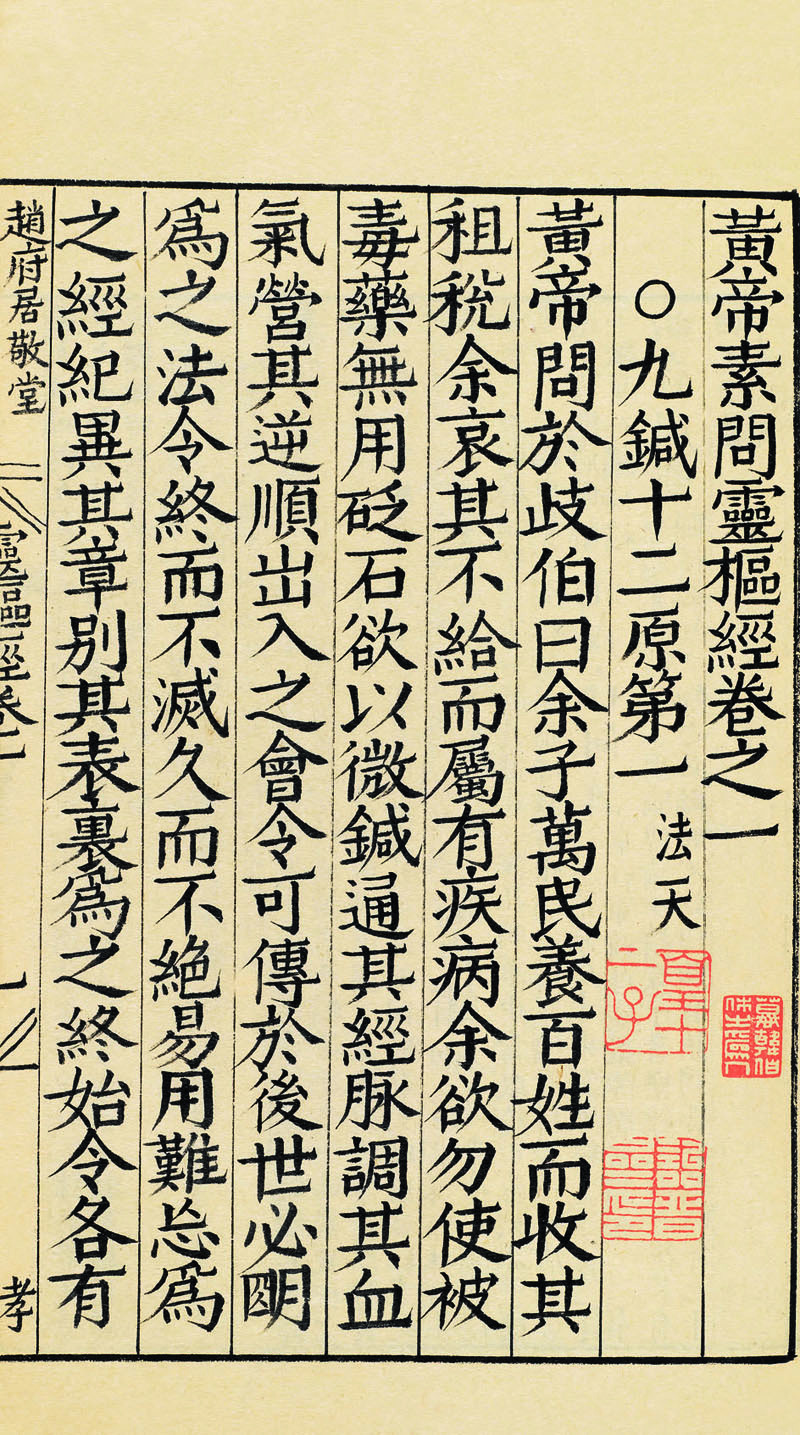 黃帝素問靈樞經卷之一
○九鍼十二原第一 法天
黃帝問於歧伯曰余子萬民養百姓而收其
租稅余哀其不給而屬有疾病余欲勿使被
毒藥無用砭石欲以微鍼通其經脉調其血
氣營其逆順出入之會令可傳於後世必明
爲之法令終而不滅久而不絶易用難忘爲
之經紀異其章别其表裏爲之終始令各有
趙府居敬堂
靈樞經卷一
一
孝